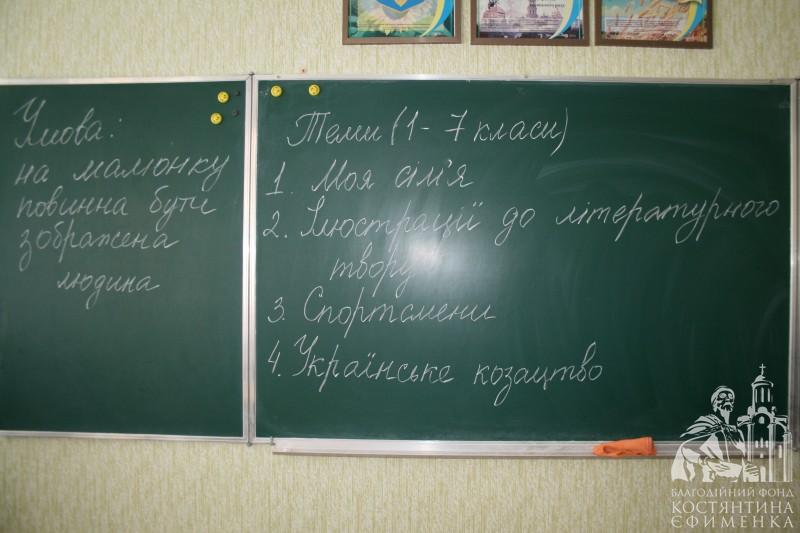 Умова:
на малюнку
повинна бути
зображена
людина
Теми (1-7 класи)
1. Моя сім'я
2. Ілюстрації до літературного
твору
3. Спортсмени
4. Українське козацтво
БЛАГОДІЙНИЙ ФОНД
КОСТЯНТИНА
ЄФИМЕНКА